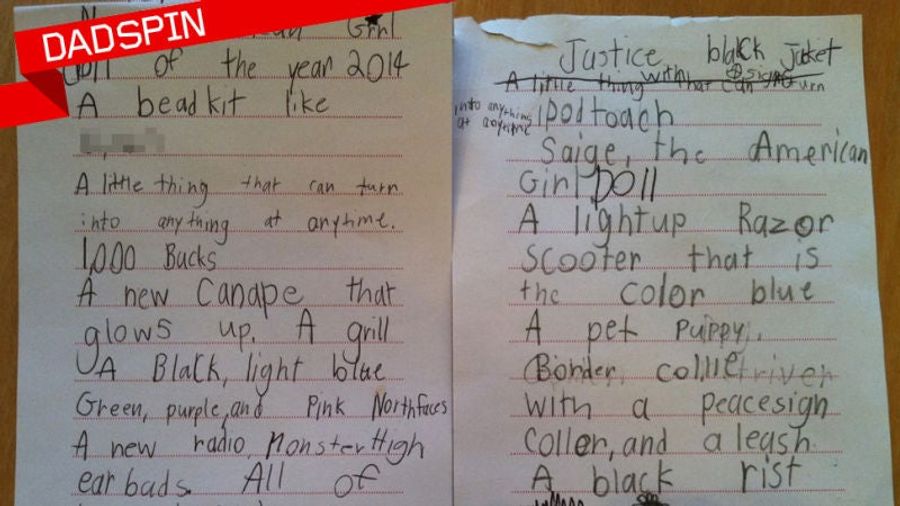 DADSPIN
Girl
Doll of the year 2014
A bead kit like
A little thing that can turn
into anything at anytime.
1,000 Bucks
A new Canape that
glows up. A grill
A Black, light blue
Green, purple, and Pink Northfaces
A new radio, Monster High
ear bads. All of
Justice black Jacket
with
A little thing that can turn
into anything
at anytime
ipodtoach
Saige, the American
Girl Doll
A lightup Razor
Scooter that is
the color blue
A pet Puppy.
Border collie
with a peacesign
Coller, and a leash
A black rist